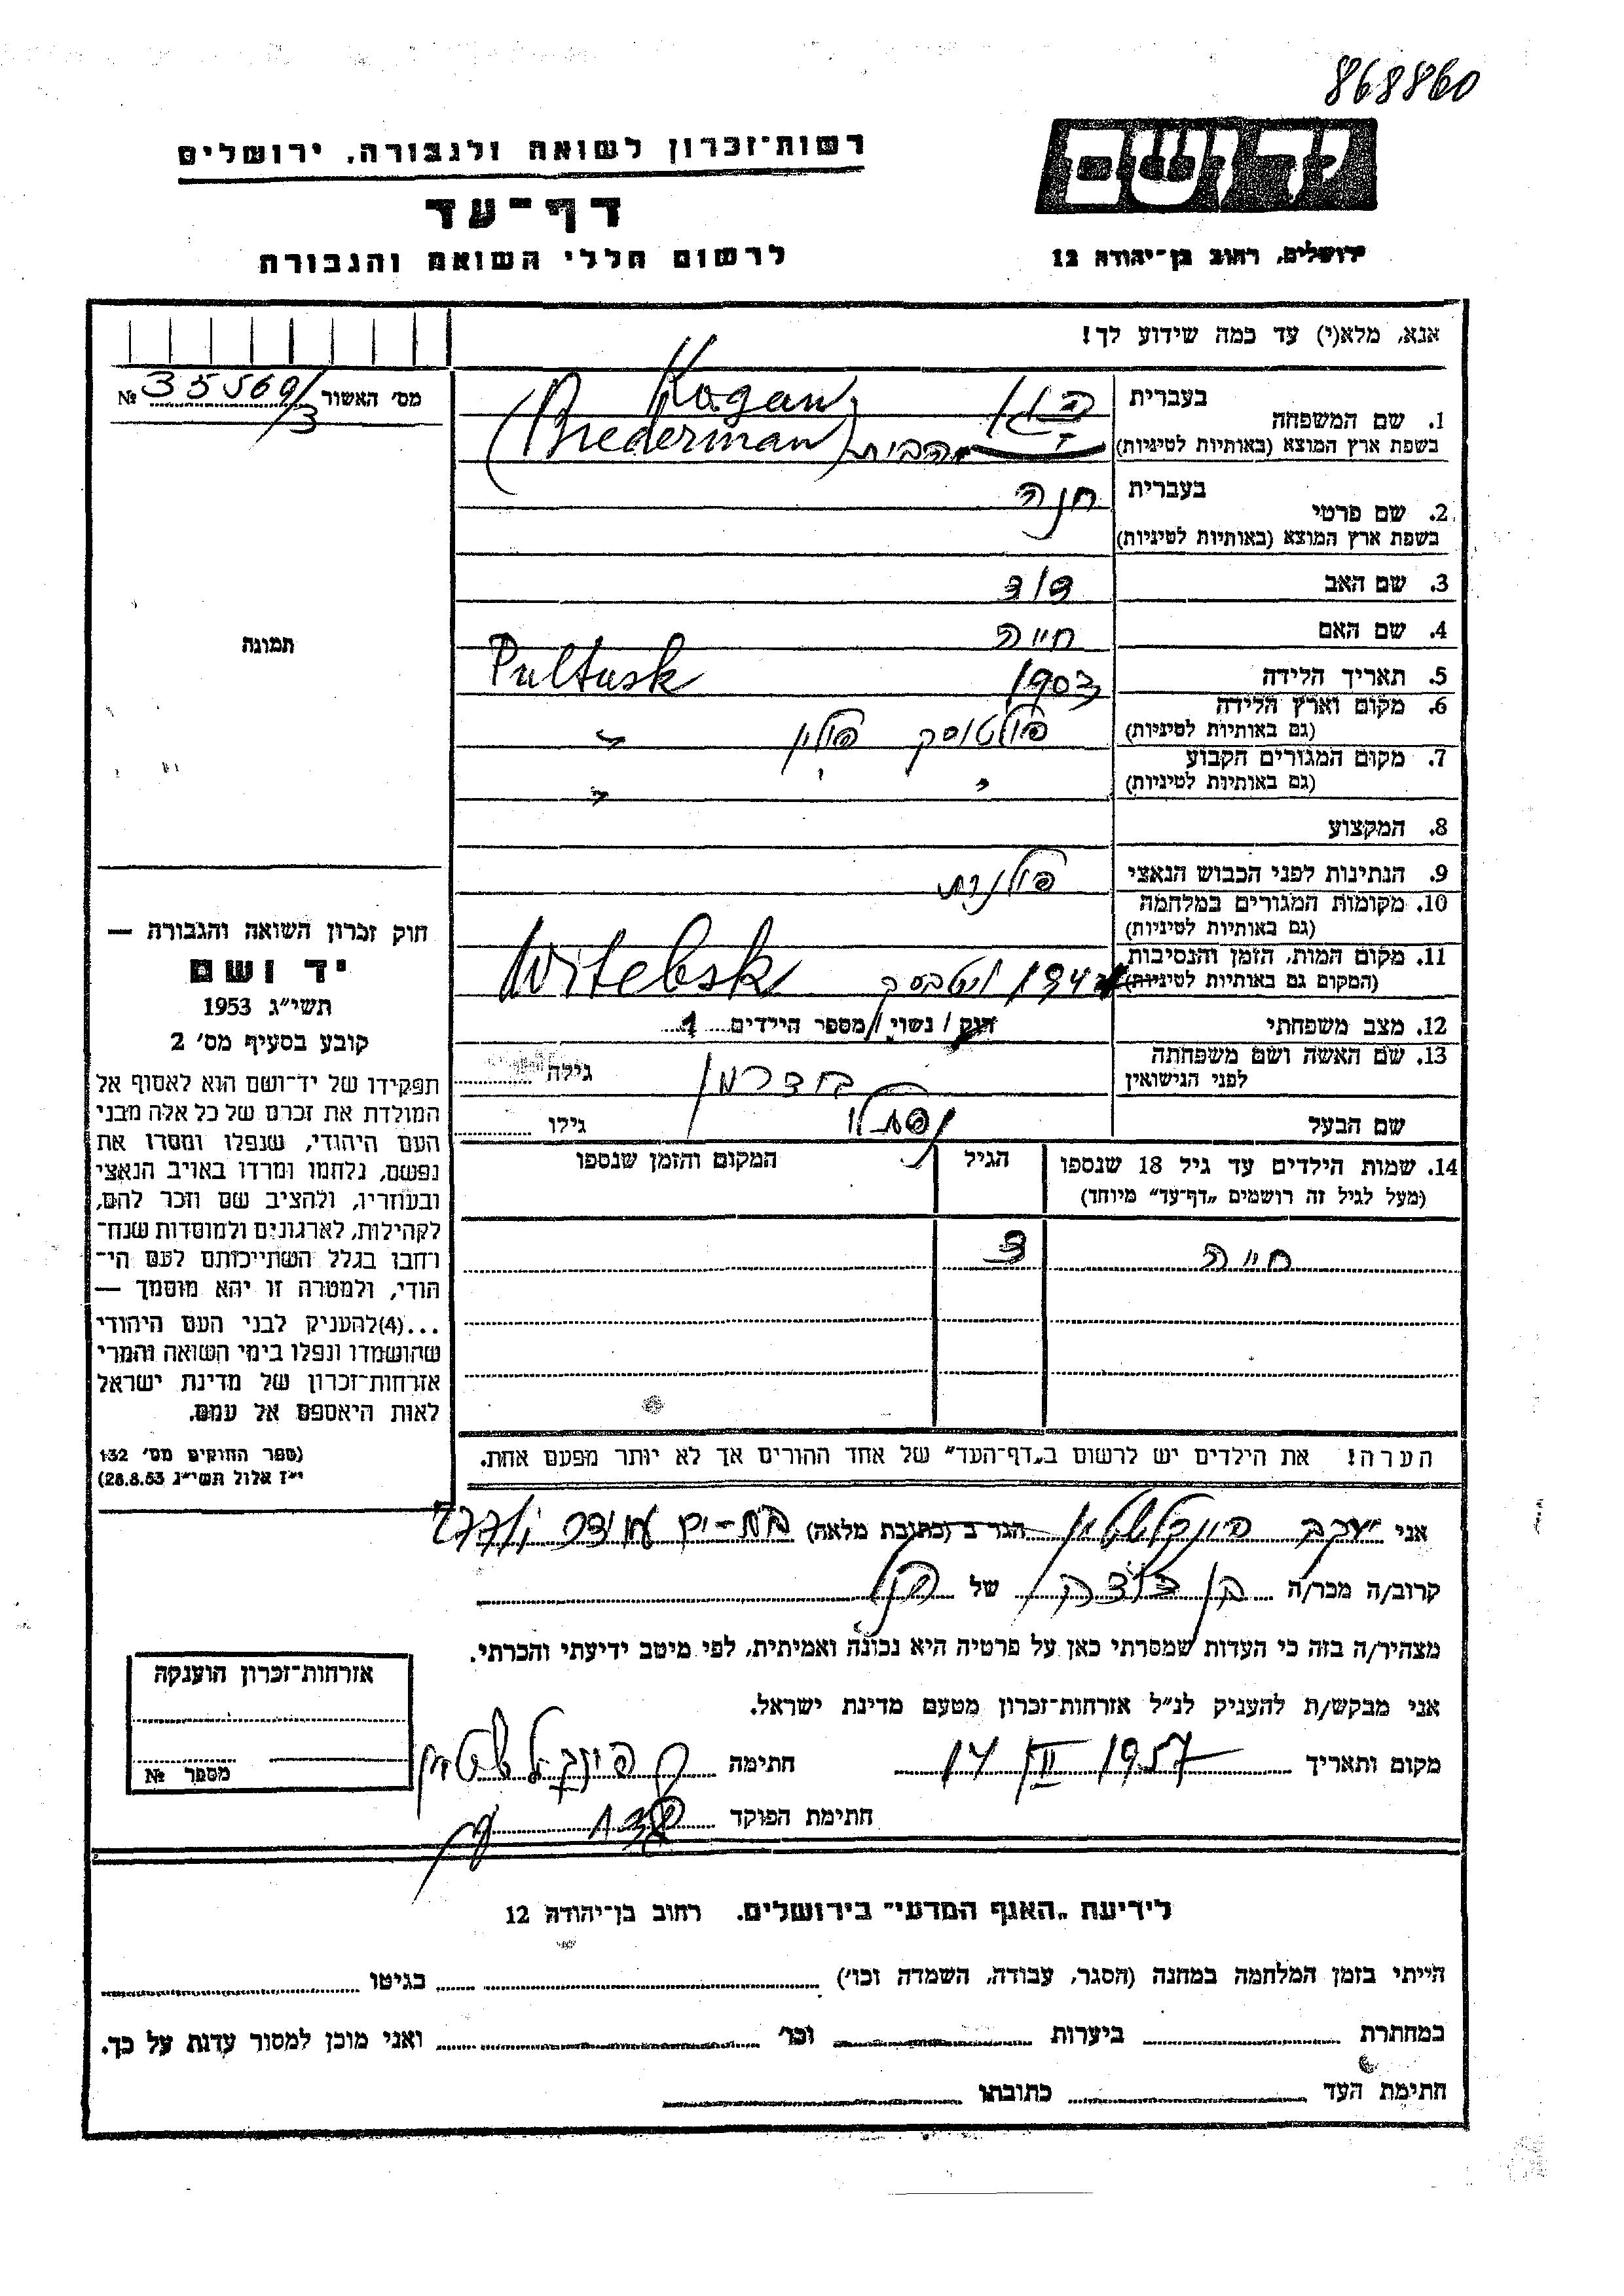 868860
יד ושם
ירושלים, רחוב בן־יהודה 12
רשות־זכרון לשואה ולגבורה, ירושלים
דף־עד
לרשום חללי השואה והגבורה
אנא, מלא(י) עד כמה שידוע לך!
מס׳ האשור № 35569/3
1. שם המשפחה
בעברית
בשפת ארץ המוצא (באותיות לטיניות)
Kogan
(Biederman) מהבית
2. שם פרטי
בעברית חנה
בשפת ארץ המוצא (באותיות לטיניות)
3. שם האב דוד
4. שם האם חיה
5. תאריך הלידה 1903
Pultusk
6. מקום וארץ הלידה
(גם באותיות לטיניות) פולטוסק פולין
7. מקום המגורים הקבוע
(גם באותיות לטיניות) " "
8. המקצוע
9. הנתינות לפני הכבוש הנאצי פולנית
10. מקומות המגורים במלחמה
(גם באותיות לטיניות)
11. מקום המות, הזמן והנסיבות
(המקום גם באותיות לטיניות) ויטבסק Witebsk
12. מצב משפחתי רוק / נשוי / מספר הילדים 1
13. שם האשה ושם משפחתה
לפני הנישואין בידרמן גילה
שם הבעל גילו
14. שמות הילדים עד גיל 18 שנספו
(מעל לגיל זה רושמים „דף־עד" מיוחד)
הגיל
המקום והזמן שנספו
חיה 3
הערה! את הילדים יש לרשום ב„דף־העד" של אחד ההורים אך לא יותר מפעם אחת.
תמונה
חוק זכרון השואה והגבורה —
יד ושם
תשי״ג 1953
קובע בסעיף מס׳ 2
תפקידו של יד־ושם הוא לאסוף אל
המולדת את זכרם של כל אלה מבני
העם היהודי, שנפלו ומסרו את
נפשם, נלחמו ומרדו באויב הנאצי
ובעוזריו, ולהציב שם וזכר להם,
לקהילות, לארגונים ולמוסדות שנח־
רחבו בגלל השתייכותם לעם הי־
הודי, ולמטרה זו יהא מוסמך —
...(4)להעניק לבני העם היהודי
שהושמדו ונפלו בימי השואה והמרי
אזרחות־זכרון של מדינת ישראל
לאות היאספם אל עמם.
(ספר החוקים מס׳ 132
י״ז אלול תשי״ג 28.8.53)
אני יעקב פינקלשטיין הגר ב (כתובת מלאה) בת-ים
קרוב/ה מכר/ה בן דודה של הנ"ל
מצהיר/ה בזה כי העדות שמסרתי כאן על פרטיה היא נכונה ואמיתית, לפי מיטב ידיעתי והכרתי.
אני מבקש/ת להעניק לנ״ל אזרחות־זכרון מטעם מדינת ישראל.
מקום ותאריך 1957 חתימה פינקלשטיין
חתימת הפוקד
אזרחות־זכרון הוענקה
מספר №
לידיעת „האגף המדעי" בירושלים. רחוב בן־יהודה 12
הייתי בזמן המלחמה במחנה (הסגר, עבודה, השמדה וכו׳) בגיטו
במחתרת ביערות וכו׳ ואני מוכן למסור עדות על כך.
חתימת העד כתובתו